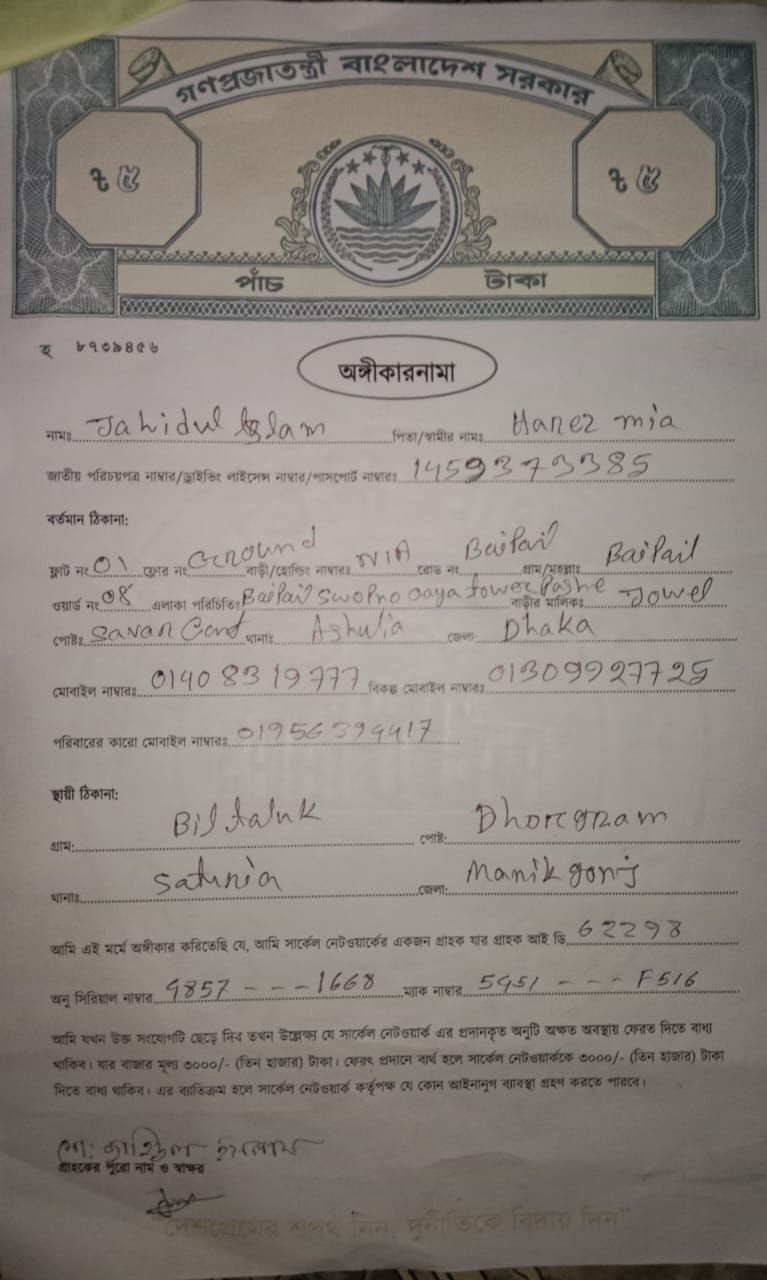 গণপ্রজাতন্ত্রী বাংলাদেশ সরকার
৳ ৫ ৳ ৫
পাঁচ টাকা
হ ৮৭৩৯৪৫৬
অঙ্গীকারনামা
নামঃ Jahidul Islam পিতা/স্বামীর নামঃ Harez mia
জাতীয় পরিচয়পত্র নাম্বার/ড্রাইভিং লাইসেন্স নাম্বার/পাসপোর্ট নাম্বারঃ 1459373385
বর্তমান ঠিকানা:
ফ্লাট নং 01 ফ্লোর নং Ground বাড়ী/হোল্ডিং নাম্বারঃ N/A রোড নং Baipail গ্রাম/মহল্লাঃ Baipail
ওয়ার্ড নং 08 এলাকা পরিচিতিঃ Baipail Swopno tower Pashe বাড়ীর মালিকঃ Jowel
পোষ্টঃ Savar Cant থানাঃ Ashulia জেলা: Dhaka
মোবাইল নাম্বারঃ 01408319777 বিকল্প মোবাইল নাম্বারঃ 01309927725
পরিবারের কারো মোবাইল নাম্বারঃ 01956394417
স্থায়ী ঠিকানা:
গ্রাম: Bil taluk পোষ্ট: Dhoregram
থানাঃ Saturia জেলা: Manikgonj
আমি এই মর্মে অঙ্গীকার করিতেছি যে, আমি সার্কেল নেটওয়ার্কের একজন গ্রাহক যার গ্রাহক আই ডি 62298
অনু সিরিয়াল নাম্বার 4857 - - - 1668 ম্যাক নাম্বার 5451 - - - F516
আমি যখন উক্ত সংযোগটি ছেড়ে দিব তখন উল্লেক্ষ্য যে সার্কেল নেটওয়ার্ক এর প্রদানকৃত অনুটি অক্ষত অবস্থায় ফেরত দিতে বাধ্য
থাকিব। যার বাজার মূল্য ৩০০০/- (তিন হাজার) টাকা। ফেরৎ প্রদানে ব্যর্থ হলে সার্কেল নেটওয়ার্ককে ৩০০০/- (তিন হাজার) টাকা
দিতে বাধ্য থাকিব। এর ব্যতিক্রম হলে সার্কেল নেটওয়ার্ক কর্তৃপক্ষ যে কোন আইনানুগ ব্যবস্থা গ্রহণ করতে পারবে।
মো: জাহিদুল ইসলাম
গ্রাহকের পুরো নাম ও স্বাক্ষর
"দেশপ্রেমের শপথ নিন, দুর্নীতিকে বিদায় দিন"